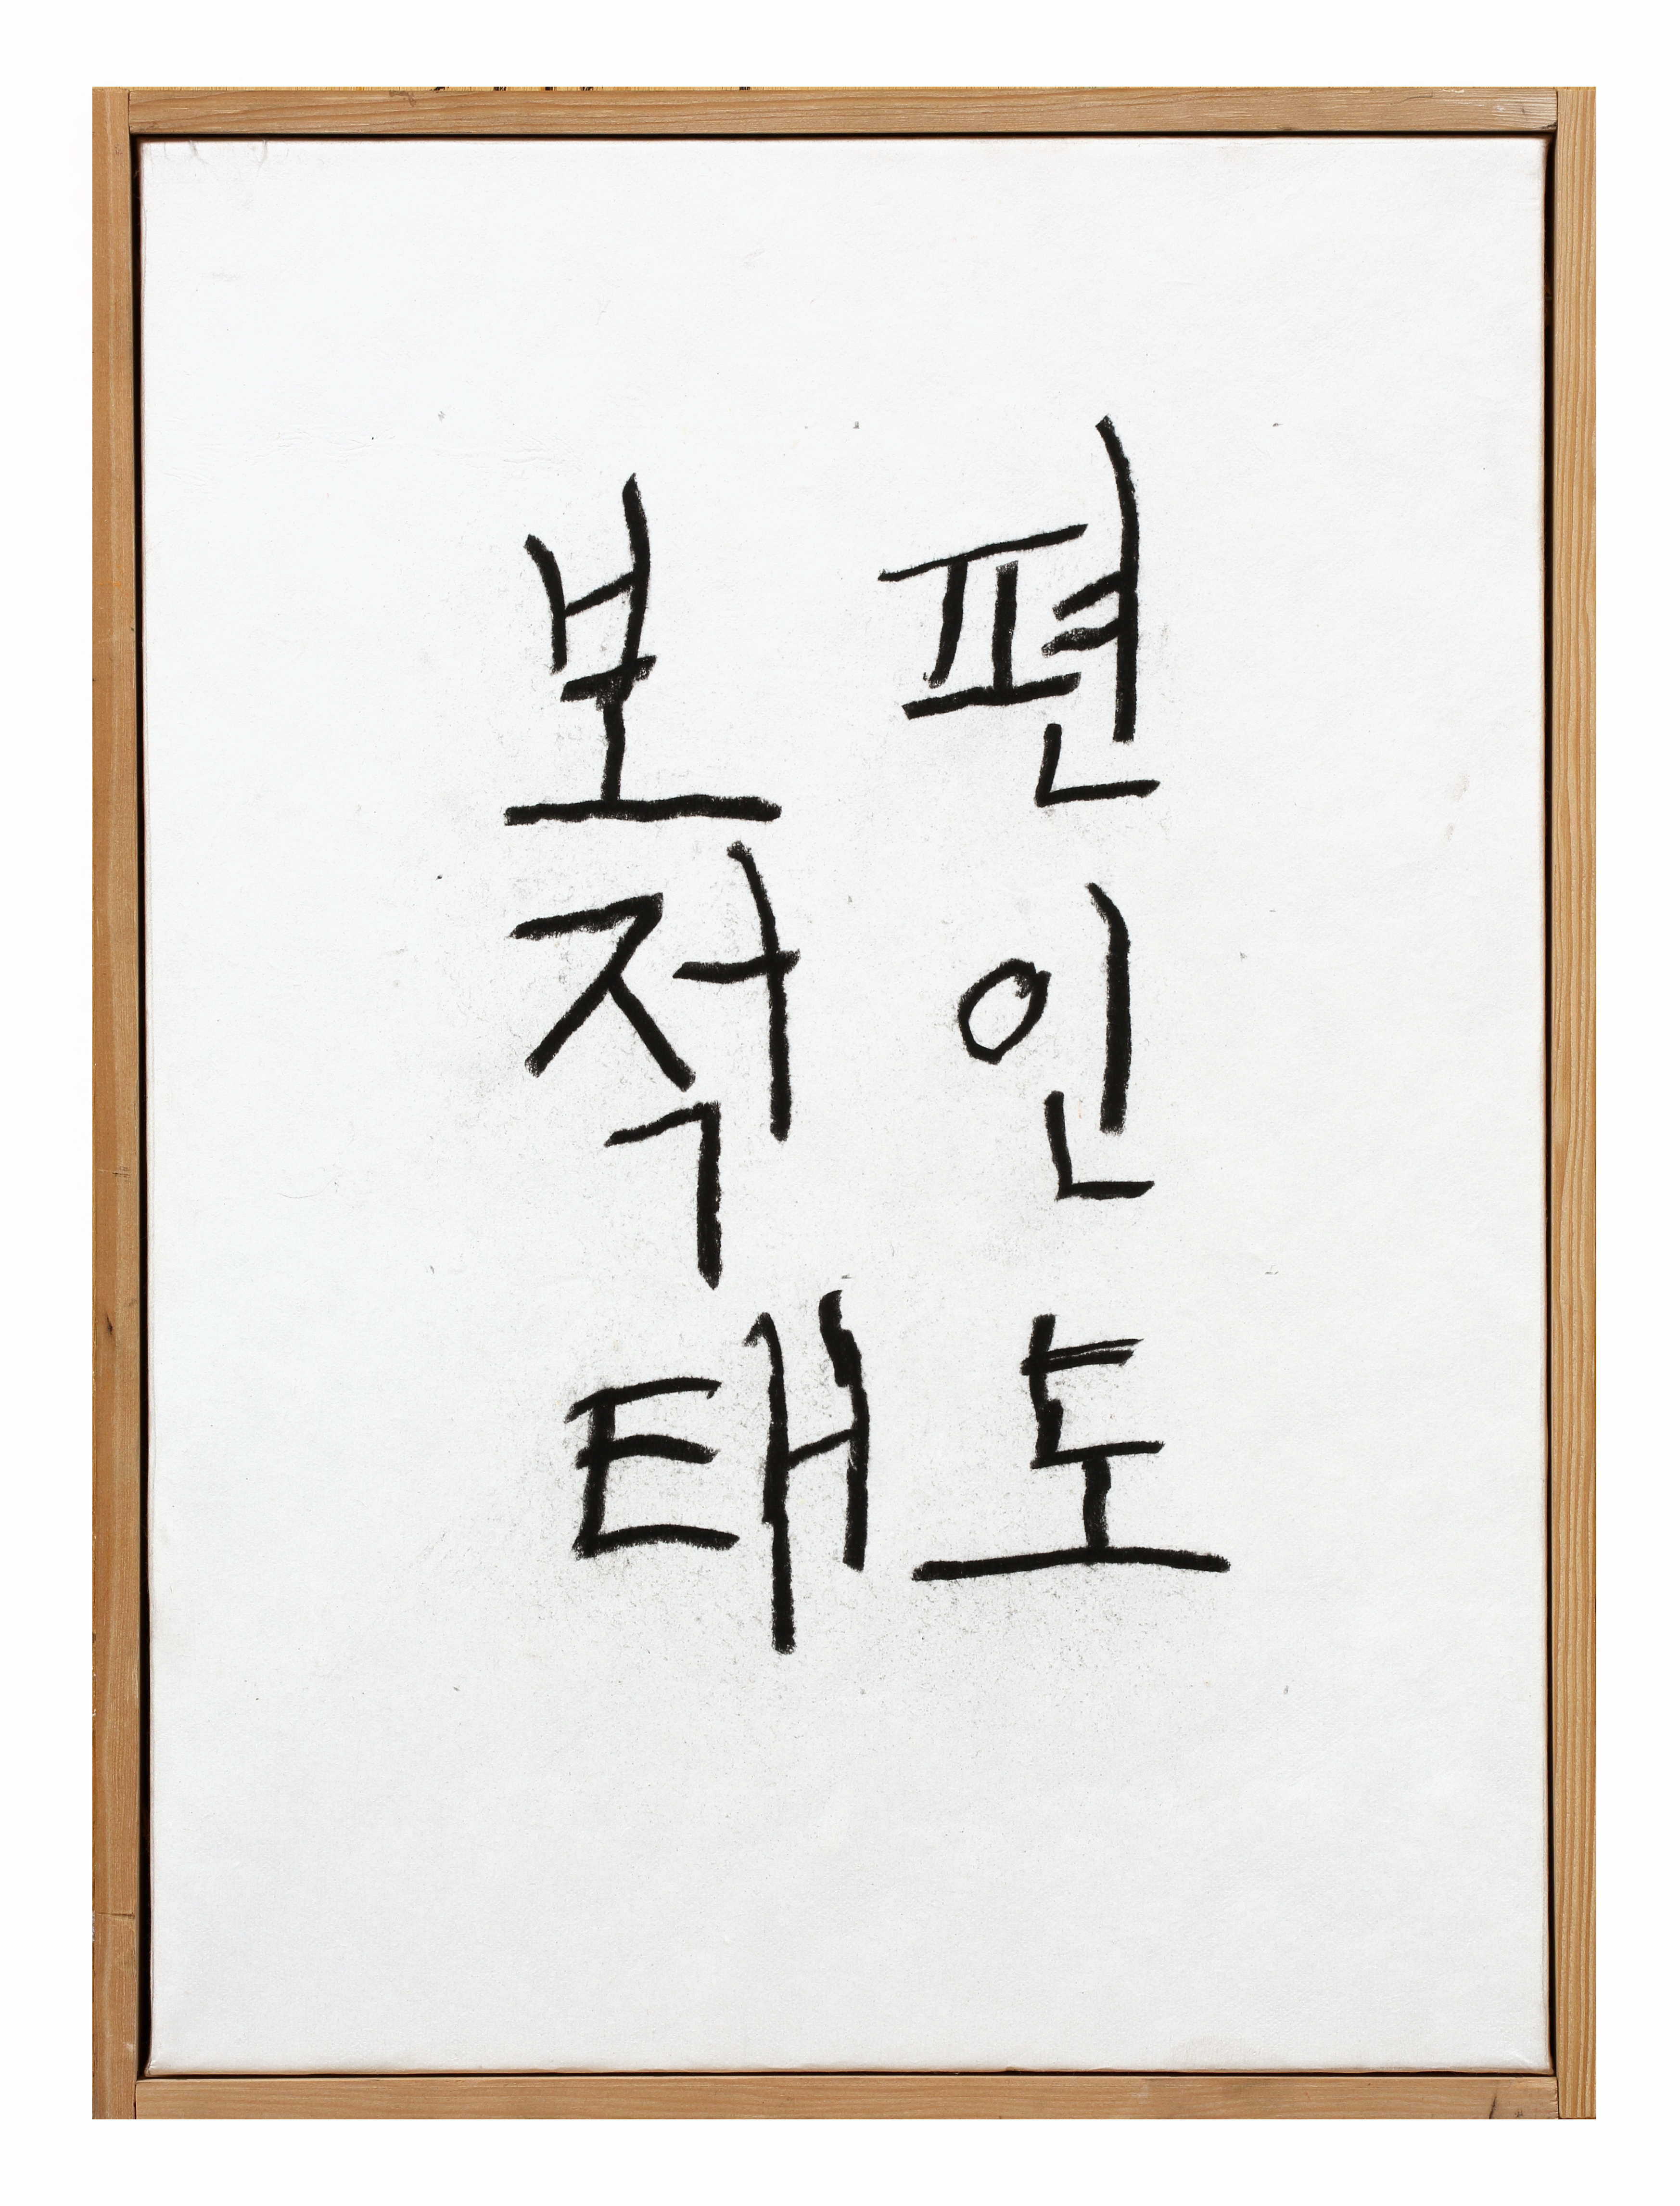 보편
적인
태도